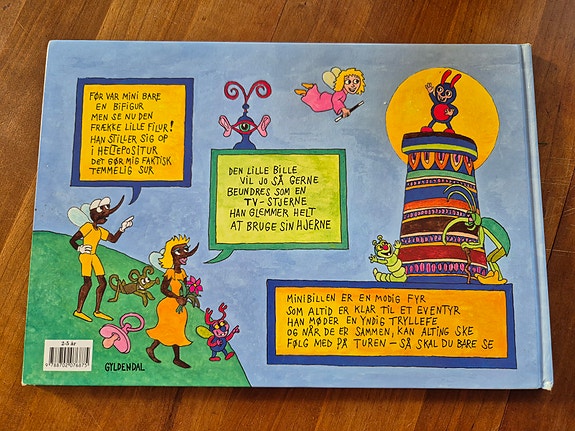 FØR VAR MINI BARE
EN BIFIGUR
MEN SE NU DEN
FRÆKKE LILLE FILUR!
HAN STILLER SIG OP
I HELTEPOSITUR
DET GØR MIG FAKTISK
TEMMELIG SUR
DEN LILLE BILLE
VIL JO SÅ GERNE
BEUNDRES SOM EN
TV-STJERNE
HAN GLEMMER HELT
AT BRUGE SIN HJERNE
MINIBILLEN ER EN MODIG FYR
SOM ALTID ER KLAR TIL ET EVENTYR
HAN MØDER EN YNDIG TRYLLEFE
OG NÅR DE ER SAMMEN, KAN ALTING SKE
FØLG MED PÅ TUREN – SÅ SKAL DU BARE SE
2-5 år
9 788702 076675
GYLDENDAL